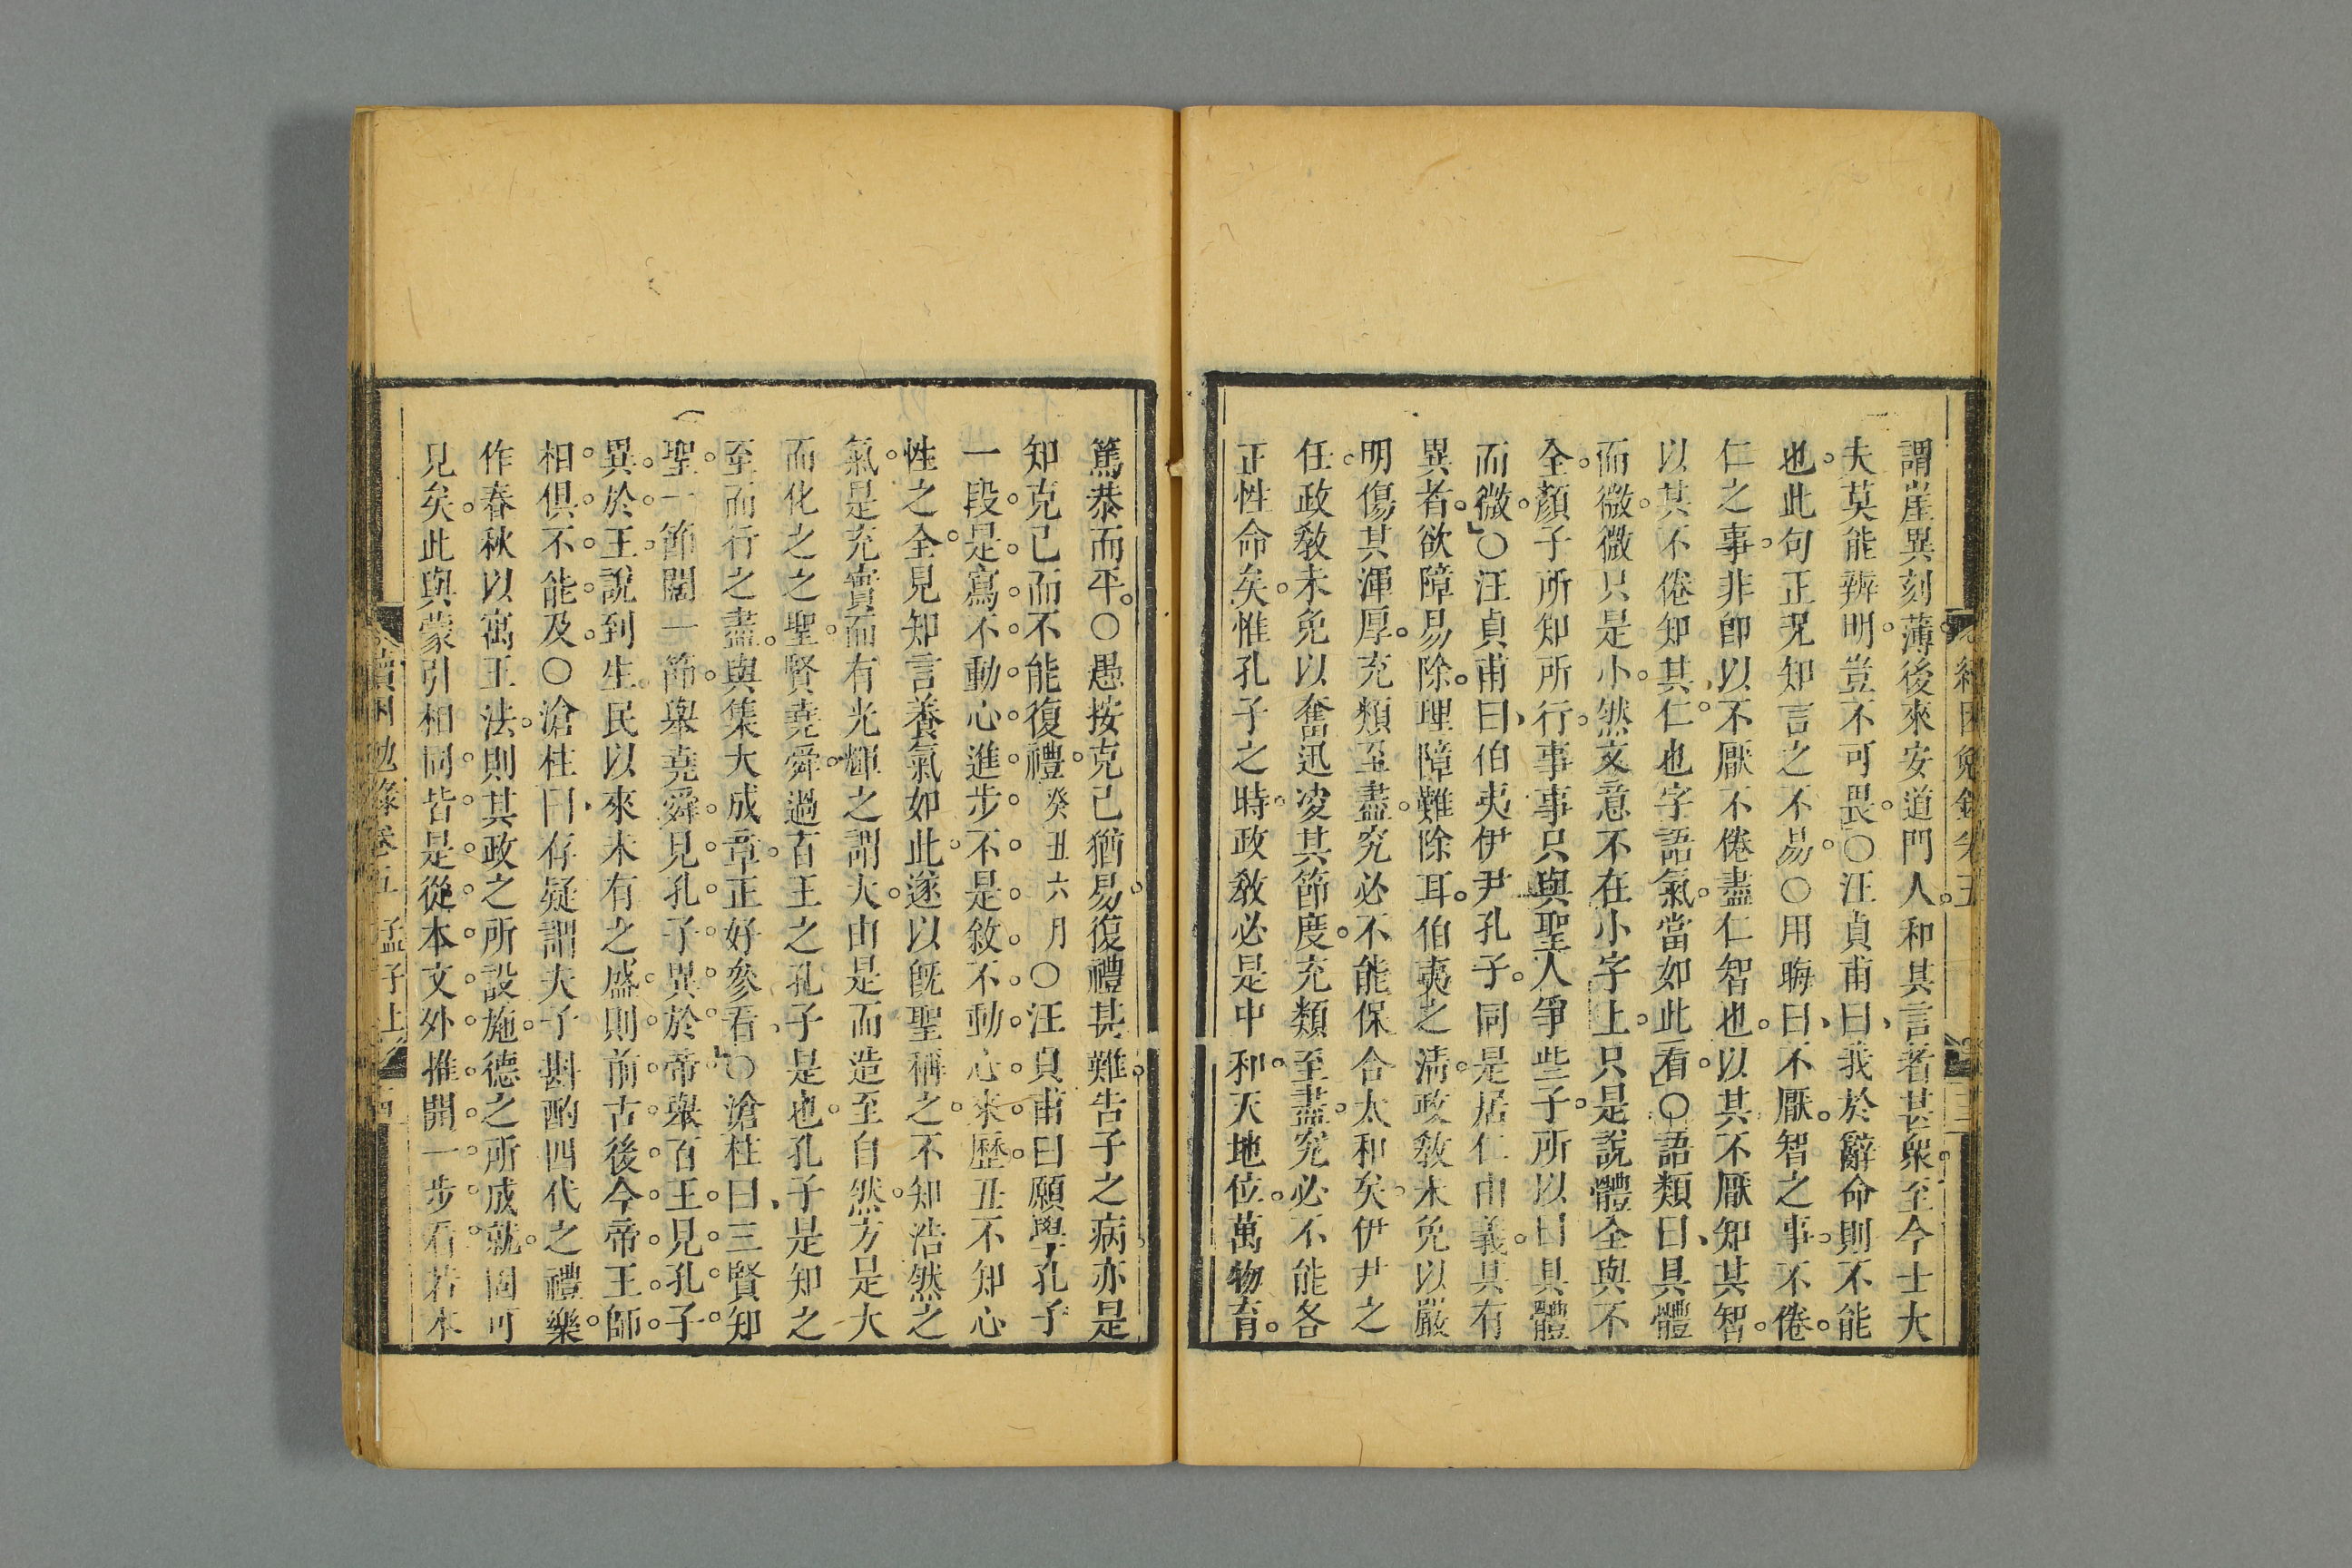 謂崖異刻薄後來安道門人和其言者甚衆至今士大
夫莫能辨明豈不可畏○汪貞甫曰我於辭命則不能
也此句正見知言之不易○用晦曰不厭智之事不倦
仁之事非卽以不厭不倦盡仁智也以其不厭知其智
以其不倦知其仁也字語氣當如此看○語類曰具體
而微微只是小然文意不在小字上只是說體全與不
全顏子所知所行事事只與聖人爭些子所以曰具體
而微○汪貞甫曰伯夷伊尹孔子同是居仁由義其有
異者欲障易除理障難除耳伯夷之淸政敎未免以嚴
明傷其渾厚充類至盡究必不能保合太和矣伊尹之
任政敎未免以奮迅凌其節度充類至盡究必不能各
正性命矣惟孔子之時政敎必是中和天地位萬物育
篤恭而平○愚按克己猶易復禮甚難告子之病亦是
知克己而不能復禮癸丑六月○汪貞甫曰願學孔子
一段是寫不動心進步不是敘不動心來歷丑不知心
性之全見知言養氣如此遂以旣聖稱之不知浩然之
氣是充實而有光輝之謂大由是而造至自然方是大
而化之之聖賢堯舜過百王之孔子是也孔子是知之
至而行之盡與集大成章正好參看○滄柱曰三賢知
聖一節闊一節舉堯舜見孔子異於帝舉百王見孔子
異於王說到生民以來未有之盛則前古後今帝王師
相俱不能及○滄柱曰存疑謂夫子斟酌四代之禮樂
作春秋以寓王法則其政之所設施德之所成就固可
見矣此與蒙引相同皆是從本文外推開一步看若本
續困勉錄卷五 孟子上